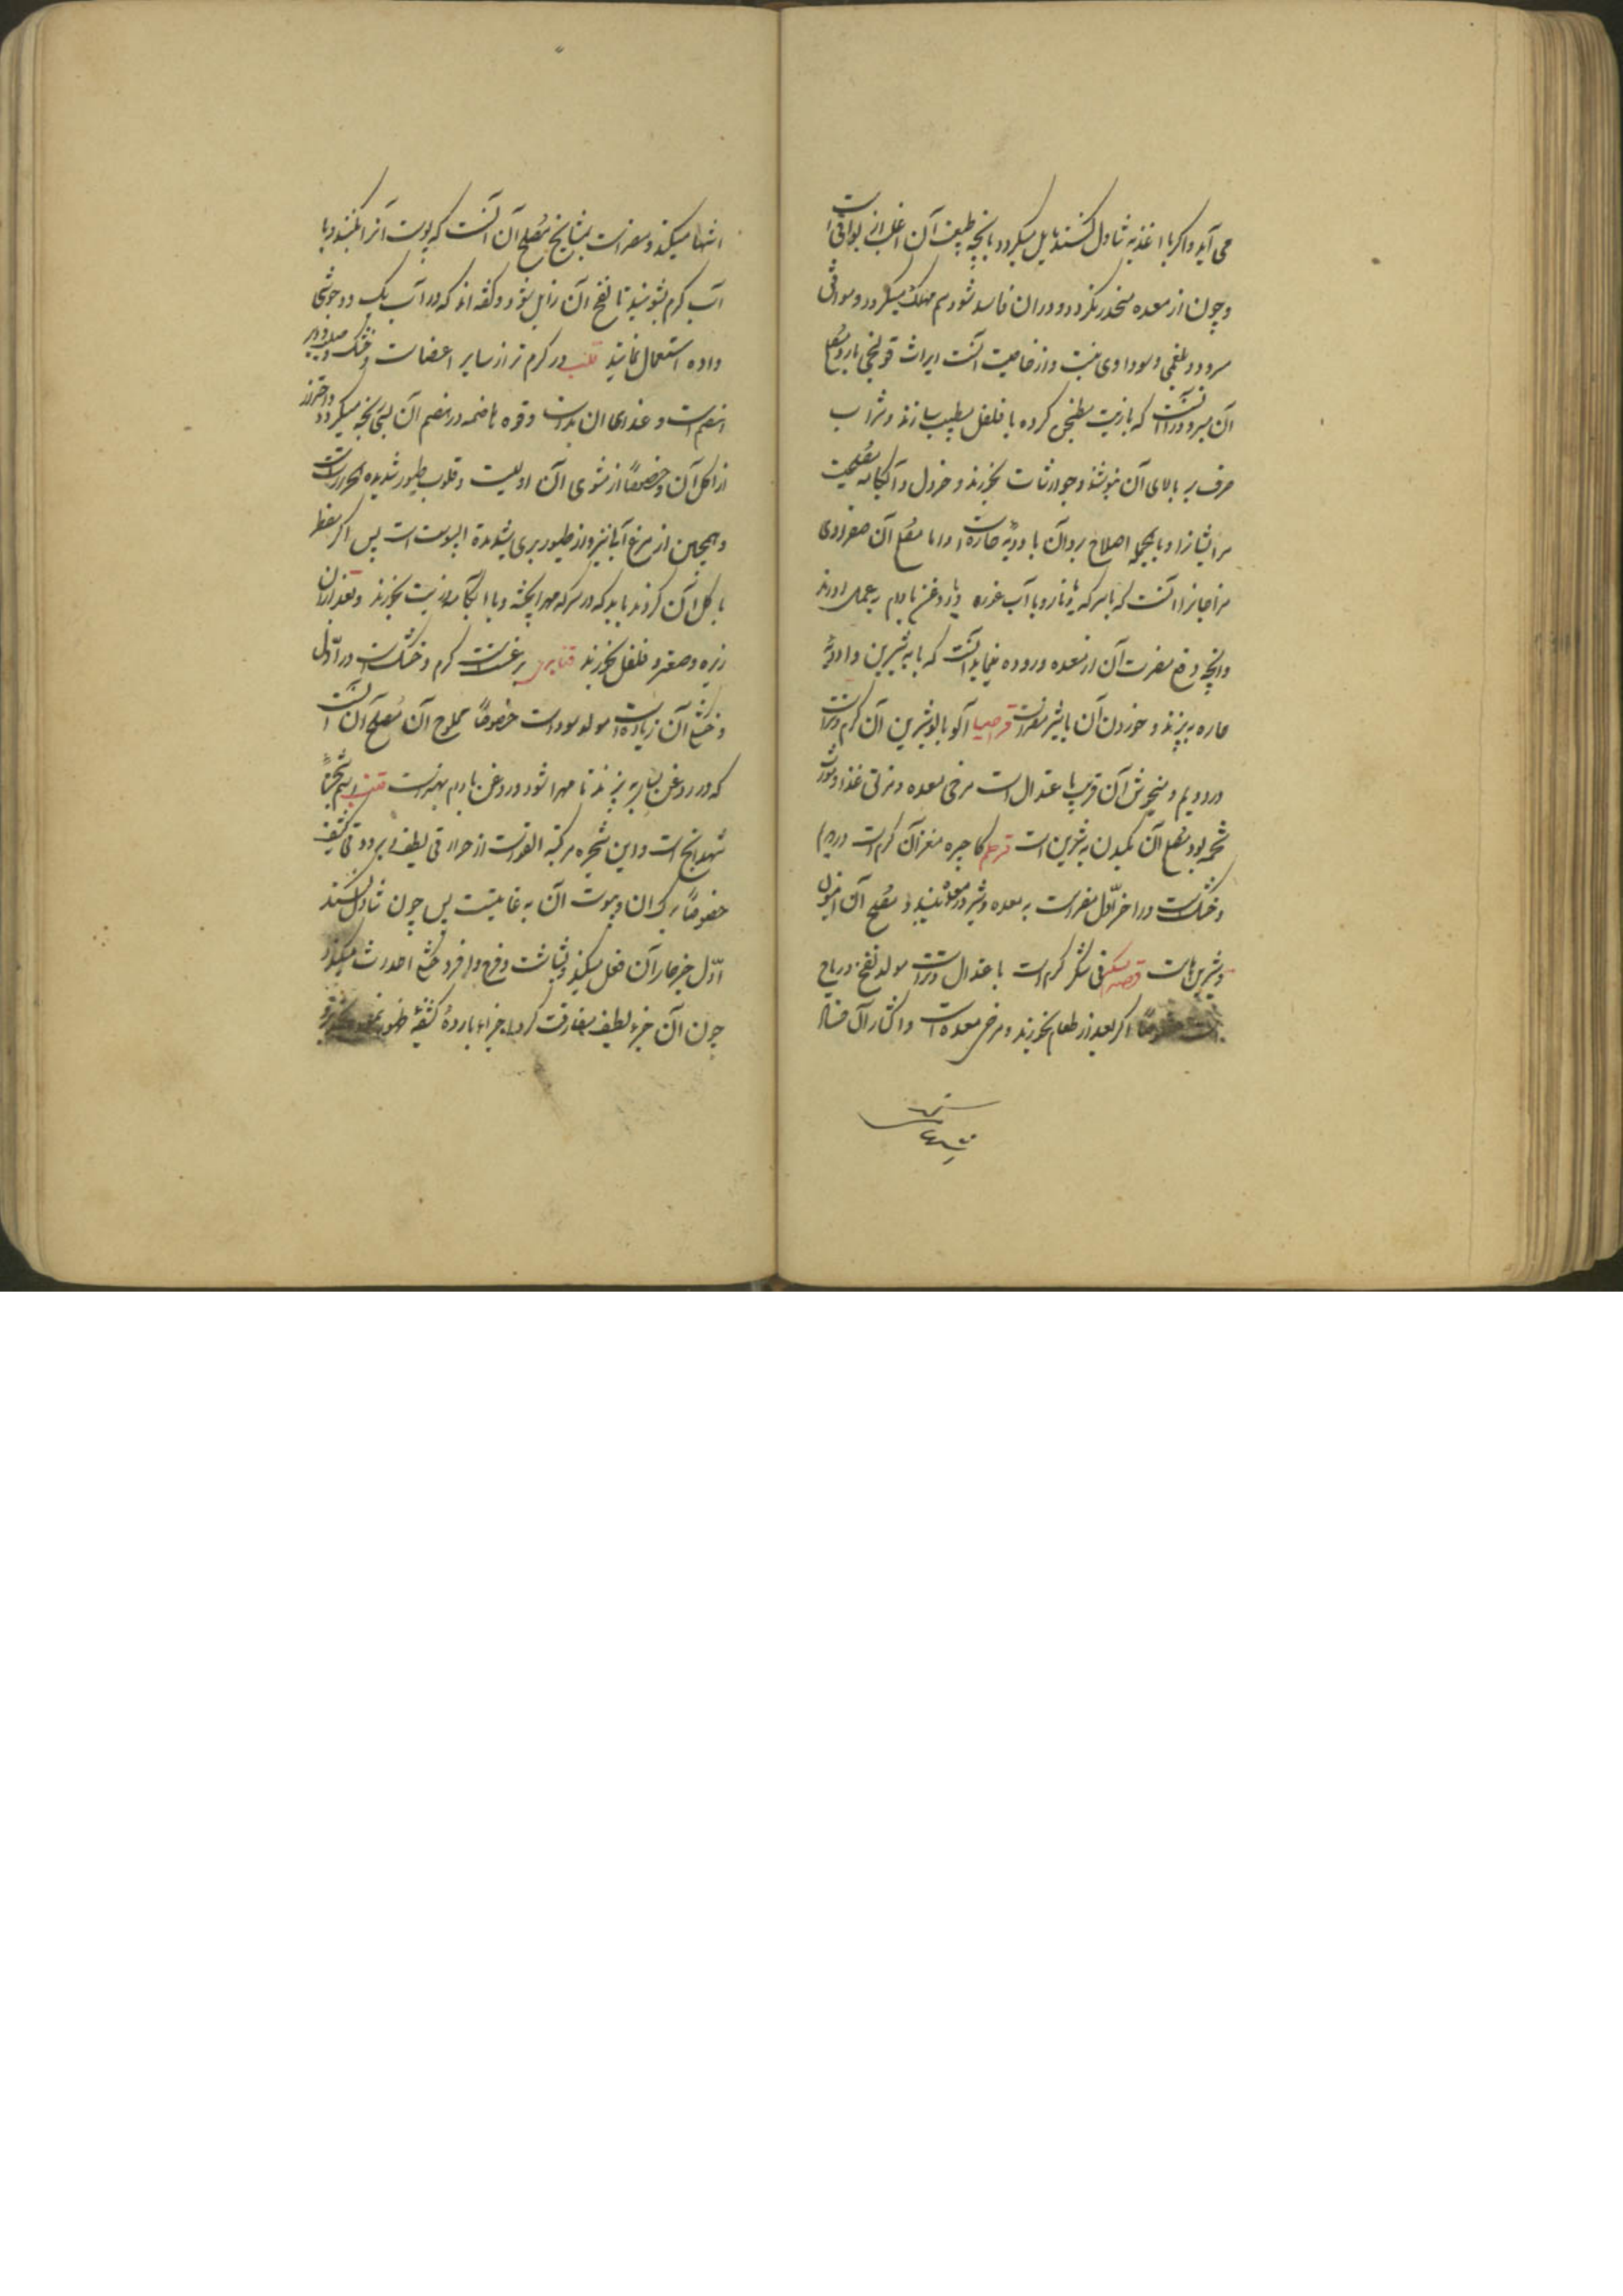 می آید و اکر با اغذیه تناول کنند مایل میکردد بانچه طبیعت آن اغلب
و چون از معده منحدر نکردد و در ان فاسد شود سم مهلک میکردد و موافق
سرد و بلغمی و سوداوی نیست و از خاصیت آنست ایراث قولنجی بارد و مصلح
آن مبرود را آنست که بازیت مطنجن کرده با فلفل مطیب سازند و شراب
صرف بر بالای آن بنوشند و جوارشات بخورند و خردل و آبکامه مصلحست
مر ایشانرا و بالجمله اصلاح برد آن با دویهٔ حاره است و اما مصلح آن صفراوی
مزاجانرا آنست که با سرکه یا نار و یا آب غوره و یا روغن بادام بعمل اورند
وانچه دفع مضرت آن از معده و روده مینماید آنست که با به شیرین و ادویهٔ
حاره به پزند و خوردن آن با شیر مضر است قراصیا آلو بالو شیرین آن کرم و تر است
در دویم و میخوش آن قریب باعتدال است مرخی معده و مزلق غذا و مورث
تخمه بود و مصلح آن مکیدن به شیرین است قرطم کاجیره مغز آن کرم است در دویم
و خشک است در اخر اول مضر است به معده و شیر در معده ببندد و مصلح آن انیسون
و شیرین هاست قصب سکر نی شکر کرم است باعتدال و تر است مولد نفخ و ریاح
است خصوصاً اکر بعد از طعام بخورند و مرخی معده است و اکثار آن فساد
اشتها
اشتها میکند و مضر است بمشایخ مصلح آن آنست که پوست آنرا بکنند و با
آب کرم بشویند تا نفخ آن زایل شود و کفته اند که در آب یک دو جوشی
داده استعمال نمایند قلب در کرم تر از سایر اعضاست و خشک و صلب و دیر
انهضام است و غذای ان بد است و قوه هاضمه در هضم آن بسی رنجه میکردد و احتراز
از اکل آن و خصوصاً از مشوی آن اولیست و قلوب طیور شدیده الحرارتست
و همچنین از مرغ آبی نیز و از طیور بری شدیدة الیبوست است پس اکر مضطر
باکل آن کردند باید که در سرکه مهرا پخته و با آبکامه و زیت بخورند و بعد از آن
زیره و صعتر و فلفل بخورند قنابری برغست است کرم و خشک است در اول
و خشکی آن زیاده است مولد سوداست خصوصاً مملوح آن مصلح آن آنست
که در روغن بسیار به پزند تا مهرا شود و روغن بادام بهتر است قنب
شهدانج است و این شجره مرکبة القوتست از حرارتی لطیف و برودتی کثیف
خصوصاً برک ان و یبوست آن به غایتست پس چون تناول کنند
اول جزء حار آن فعل میکند و بشاشت و فرح وافر و ضحک احداث میکند و
چون آن جزء لطیف مفارقت کرد اجزاء باردهٔ کثیفه